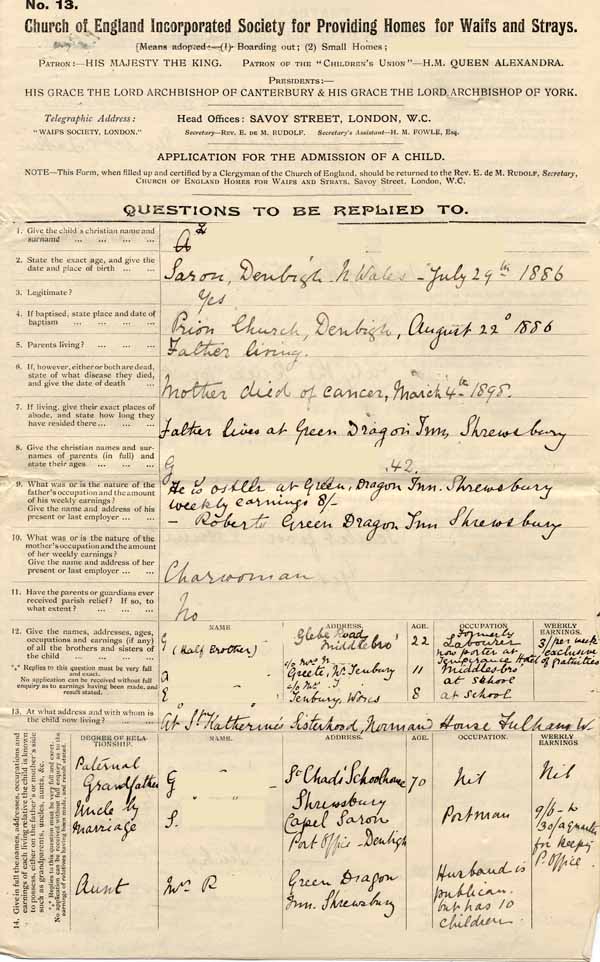 No. 13.
Church of England Incorporated Society for Providing Homes for Waifs and Strays.
[Means adopted:—(1) Boarding out; (2) Small Homes;
PATRON:—HIS MAJESTY THE KING. PATRON OF THE "CHILDREN'S UNION"—H.M. QUEEN ALEXANDRA.
PRESIDENTS:—
HIS GRACE THE LORD ARCHBISHOP OF CANTERBURY & HIS GRACE THE LORD ARCHBISHOP OF YORK.
Telegraphic Address: Head Offices: SAVOY STREET, LONDON, W.C.
"WAIFS SOCIETY, LONDON." Secretary—REV. E. DE M. RUDOLF. Secretary's Assistant—H. M. FOWLE, Esq.
APPLICATION FOR THE ADMISSION OF A CHILD.
NOTE—This Form, when filled up and certified by a Clergyman of the Church of England, should be returned to the Rev. E. DE M. RUDOLF, Secretary,
CHURCH OF ENGLAND HOMES FOR WAIFS AND STRAYS, Savoy Street, London, W.C.
QUESTIONS TO BE REPLIED TO.
1. Give the child's christian name and
surname ... ... ... ...
A
2. State the exact age, and give the
date and place of birth ... ...
Saron, Denbigh N Wales - July 29th 1886
3. Legitimate?
Yes
4. If baptised, state place and date of
baptism ... ... ... ...
Prion Church, Denbigh, August 22 1886
5. Parents living? ... ... ...
Father living.
6. If, however, either or both are dead,
state of what disease they died,
and give the date of death ...
Mother died of cancer, March 4th 1898.
7. If living, give their exact places of
abode, and state how long they
have resided there... ... ...
Father lives at Green Dragon Inn, Shrewsbury
8. Give the christian names and sur-
names of parents (in full) and
state their ages ... ... ...
G 42.
9. What was or is the nature of the
father's occupation and the amount
of his weekly earnings?
Give the name and address of his
present or last employer ... ...
He is ostler at Green Dragon Inn. Shrewsbury
weekly earnings 8/-
- Roberts Green Dragon Inn Shrewsbury
10. What was or is the nature of the
mother's occupation and the amount
of her weekly earnings?
Give the name and address of her
present or last employer ... ...
Charwoman
11. Have the parents or guardians ever
received parish relief? If so, to
what extent? ... ... ...
No
12. Give the names, addresses, ages,
occupations and earnings (if any)
of all the brothers and sisters of
the child ... ... ... ...
"*" Replies to this question must be very full
and exact.
No application can be received without full
enquiry as to earnings having been made, and
result stated.
NAME ADDRESS. AGE. OCCUPATION WEEKLY EARNINGS.
G (Half Brother) Glebe Road Middlesbro' 22 Formerly Labourer now porter at Temperance Hotel Middlesbro 3/ per week exclusive of gratuities
a c/o Mrs Greete, Nr. Tenbury 11 at school
E c/o Mr. J Tenbury, Worcs 8 at school
13. At what address and with whom is
the child now living? ... ...
At St. Katherine's Sisterhood, Normand House Fulham W.
14. Give in full the names, addresses, occupation and
earnings of each living relative the child is known
to possess, either on the father's or mother's side
such as grandparents, uncles, aunts, &c.
"*" Replies to this question must be very full and exact.
No application can be received without full enquiry as to the
earnings of relatives having been made, and result stated.
DEGREE OF RELATIONSHIP. NAME. ADDRESS. AGE. OCCUPATION. WEEKLY EARNINGS
Paternal Grandfather G St Chads' Schoolhouse Shrewsbury 70 Nil Nil
Uncle by Marriage S. Capel Saron Post Office - Denbigh Postman 9/6 - to 30/ a quarter for keeping P. Office
Aunt Mrs R Green Dragon Inn. Shrewsbury Husband is publican. but has 10 children.